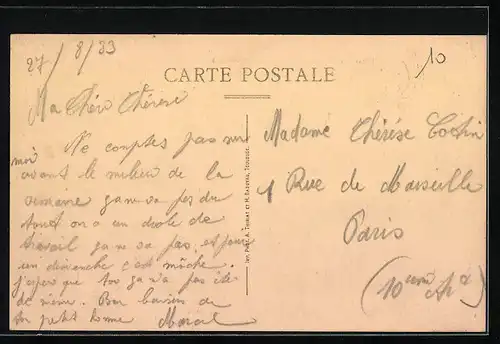 27/8/33
10
CARTE POSTALE
Ma Chère Thérèse
Ne comptes pas sur
moi
avant le milieu de la
semaine ça ne va pas du
tout on a un drôle de
travail ça ne va pas, et puis
un dimanche c'est moche.
j'espère que toi ça n'a pas été
de même. Bon baiser de
ton petit homme Marcel
Madame Thérèse
1 Rue de Marseille
Paris
(10